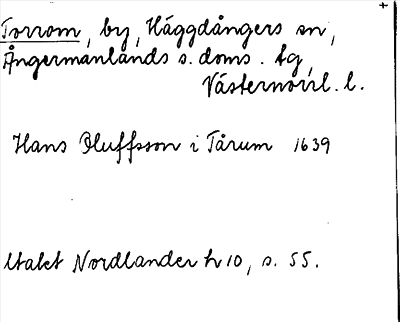 Torrom, by, Häggdångers sn,
Ångermanlands s. doms. tg,
Västernorrl. l.
Hans Oluffsson i Tårum 1639
Utalet Nordlander h 10, s. 55.